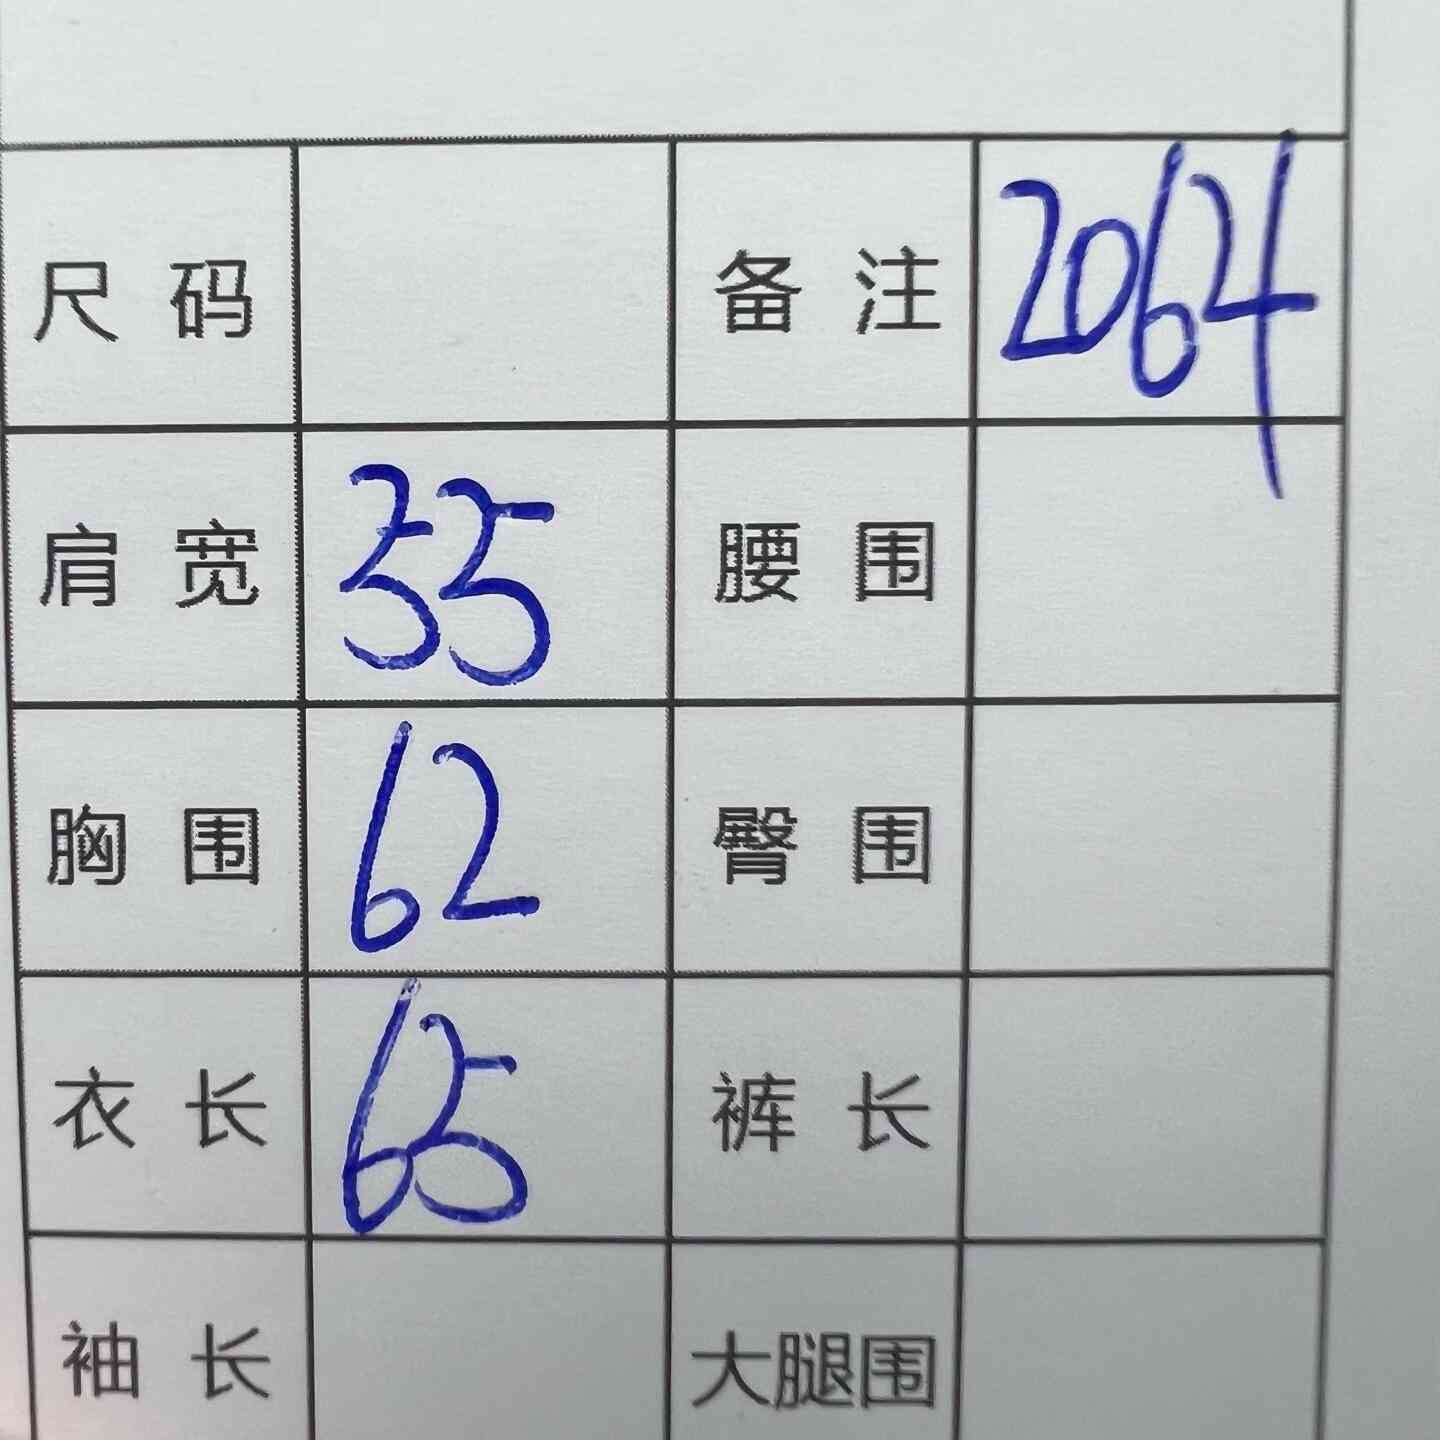 尺码 备注 2064
肩宽 55 腰围
胸围 62 臀围
衣长 65 裤长
袖长 大腿围